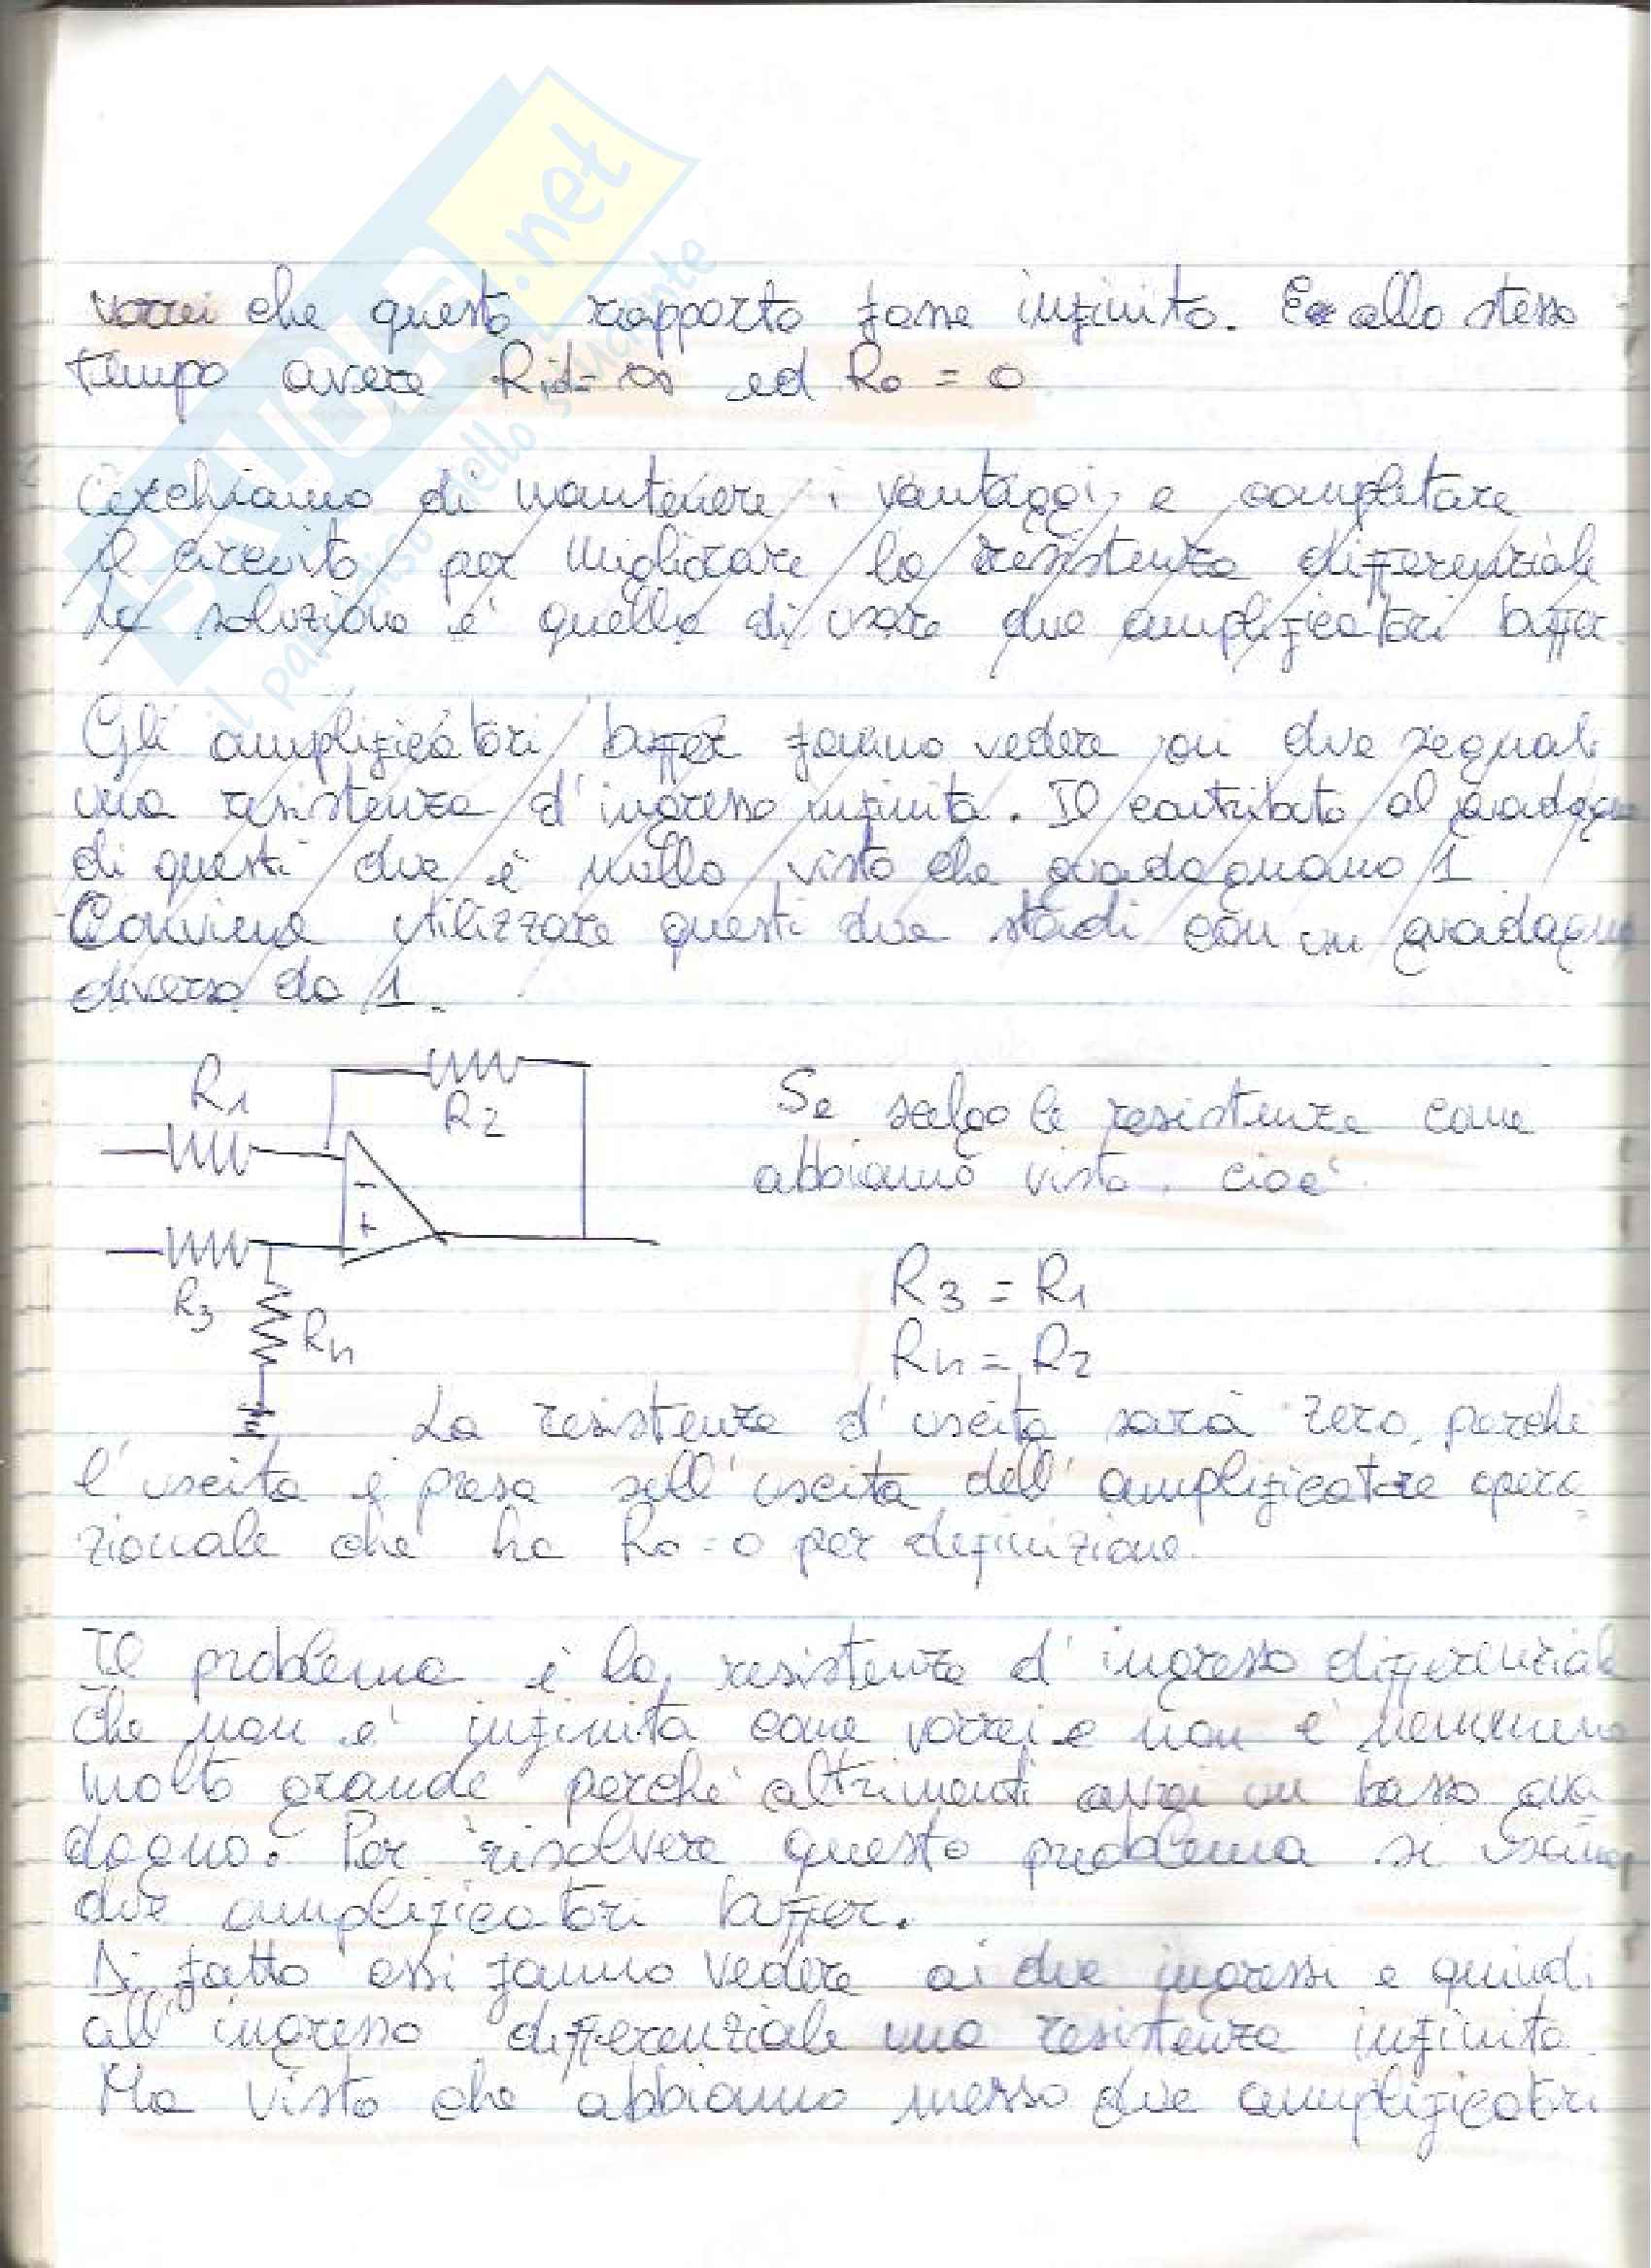 vorrei che questo rapporto fosse infinito. E allo stesso
tempo avere Rid=∞ ed Ro = 0
Cerchiamo di mantenere i vantaggi e completare
il circuito per migliorare la resistenza differenziale
La soluzione è quella di usare due amplificatori buffer
Gli amplificatori buffer fanno vedere ai due segnali
una resistenza d'ingresso infinita. Il contributo al guadagno
di questi due è nullo visto che guadagnano 1
Conviene utilizzare questi due stadi con un guadagno
diverso da 1.
R1
R2
Se scelgo le resistenze come
abbiamo visto, cioè
-
+
R3 = R1
R3
R4
R4 = R2
La resistenza d'uscita sarà zero, perchè
l'uscita è presa sull'uscita dell'amplificatore opera
zionale che ha Ro=0 per definizione.
Il problema è la resistenza d'ingresso differenziale
che non è infinita come vorrei e non è nemmeno
molto grande perchè altrimenti avrei un basso gua
dagno. Per risolvere questo problema si usano
due amplificatori buffer.
Di fatto essi fanno vedere ai due ingressi e quindi
all'ingresso differenziale una resistenza infinita.
Ma visto che abbiamo messo due amplificatori
SKUOLA.net
il paradiso dello studente